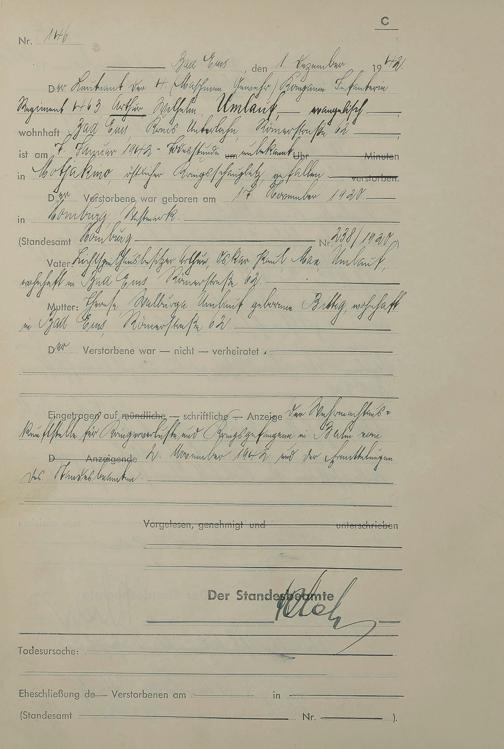 C
Nr. 146
Bad Ems, den 1. Dezember 1942
Der Leutnant der 4. Maschinen Gewehr/Kompanie Infanterie
Regiment 463 Arthur Wilhelm Umlauf, — evangelisch —
wohnhaft Bad Ems, Kreis Unterlahn, Römerstraße 62
ist am 7. Januar 1942 - Todesstunde um unbekannt Uhr Minuten
in östlicher Kriegsschauplatz gefallen verstorben.
Der Verstorbene war geboren am 17. November 1920
in Homburg, Westerwk.
(Standesamt Homburg Nr. 238/1920)
Vater: Arthur, Oskar Paul Max Umlauf,
wohnhaft in Bad Ems, Römerstraße 62.
Mutter: Therese Walburga Umlauf geborene wohnhaft
in Bad Ems, Römerstraße 62
Der Verstorbene war — nicht — verheiratet.
Eingetragen auf mündliche — schriftliche — Anzeige der Wehrmachtaus-
kunftstelle für Kriegerverluste und Kriegsgefangene in Berlin vom
D Anzeigende 2. November 1942 und der Ermittelungen
des Standesbeamten.
Vorgelesen, genehmigt und unterschrieben
Der Standesbeamte
Todesursache:
Eheschließung de Verstorbenen am in
(Standesamt Nr. ).